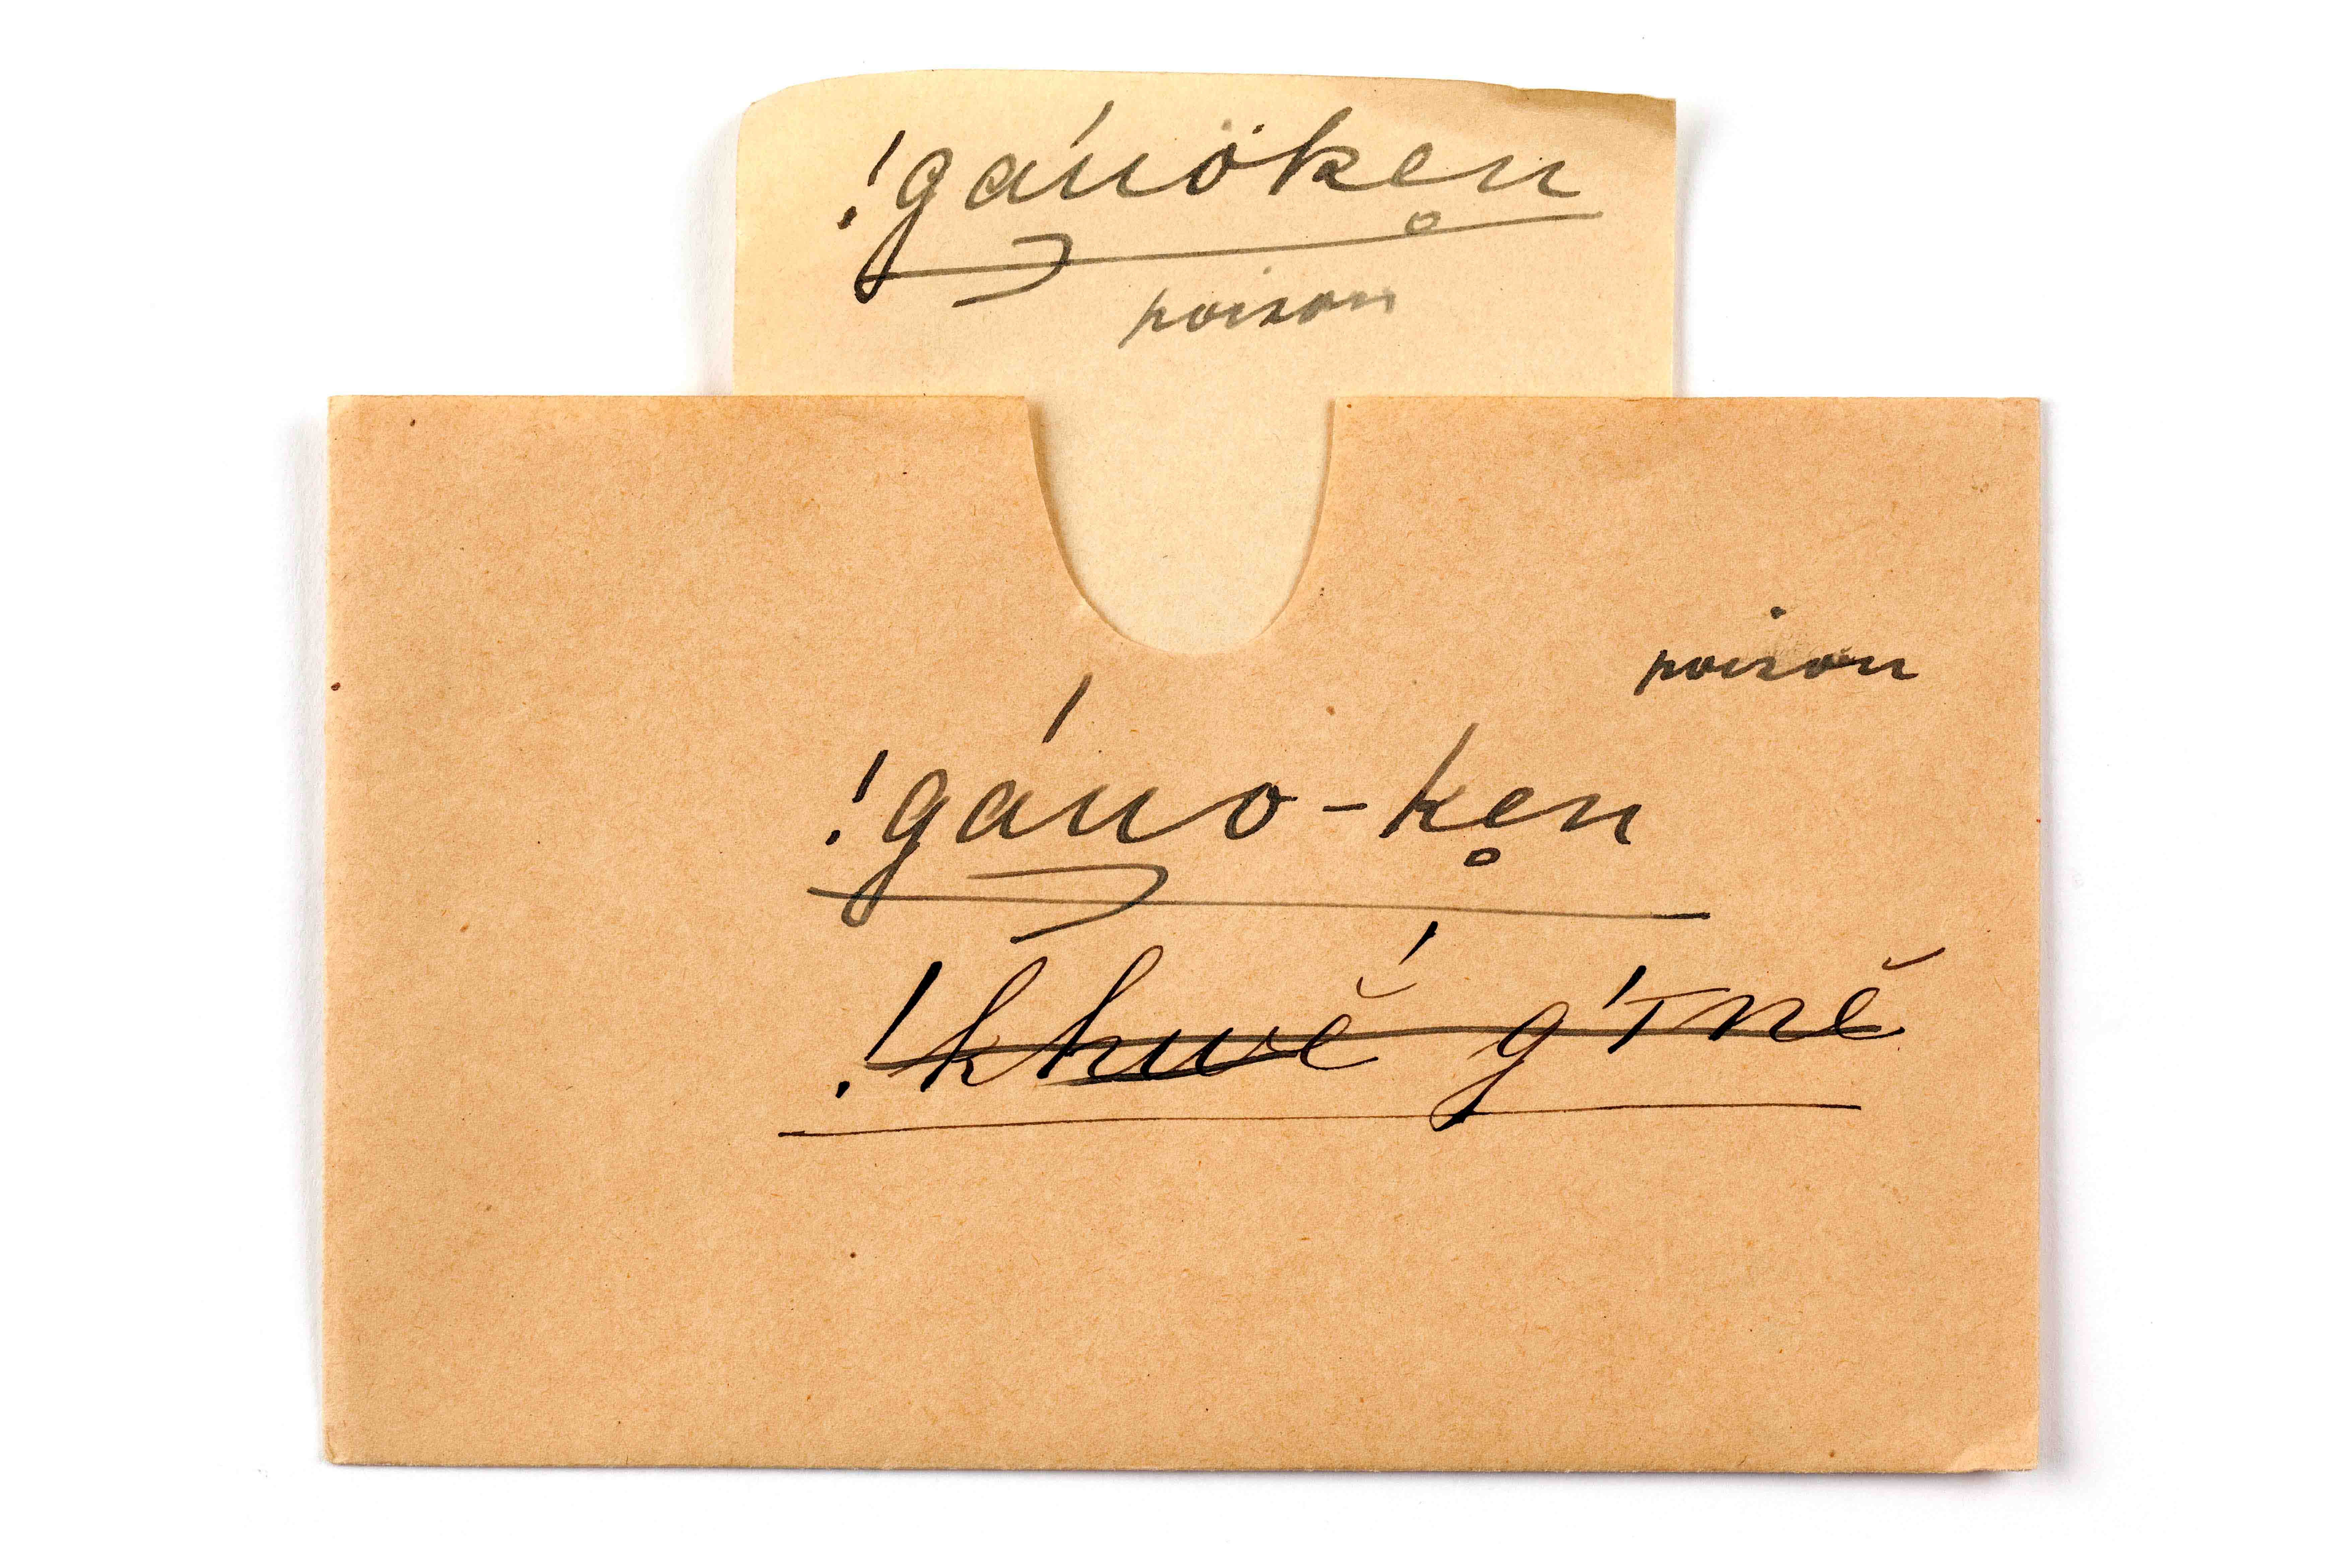 !gáu̲öke̥n
poison
poison
!gáu̲o-ke̥n
!khwĕ́ g'ınĕ